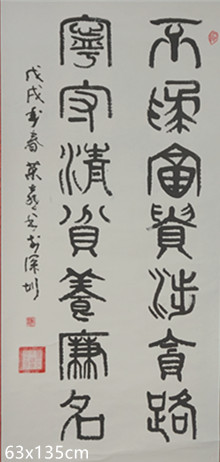 不富貴涉貪路
寧守清貧養廉名
戊戌春深圳
63x135cm